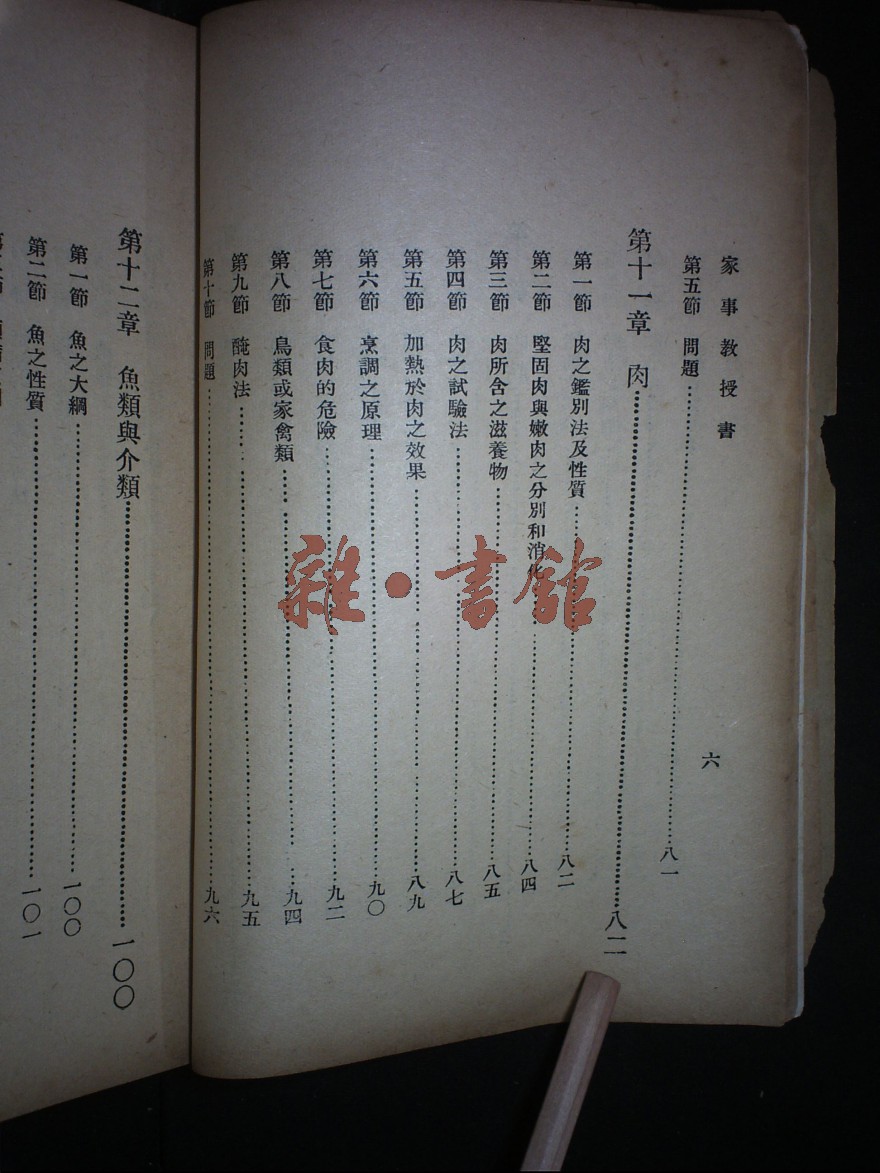 家事教授書
六
第五節 問題……八一
第十一章 肉……八二
第一節 肉之鑑別法及性質……八二
第二節 堅固肉與嫩肉之分別和消化……八四
第三節 肉所含之滋養物……八五
第四節 肉之試驗法……八七
第五節 加熱於肉之效果……八九
第六節 烹調之原理……九〇
第七節 食肉的危險……九二
第八節 鳥類或家禽類……九四
第九節 醃肉法……九五
第十節 問題……九六
第十二章 魚類與介類……一〇〇
第一節 魚之大綱……一〇〇
第二節 魚之性質……一〇一
雜·書館